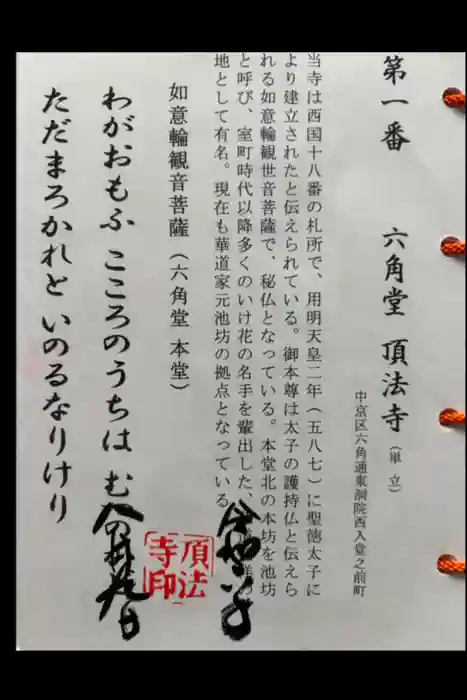 第一番 六角堂 頂法寺(単立)
中京区六角通東洞院西入堂之前町
当寺は西国十八番の札所で、用明天皇二年(五八七)に聖徳太子に
より建立されたと伝えられている。御本尊は太子の護持仏と伝えら
れる如意輪観世音菩薩で、秘仏となっている。本堂北の本坊を池坊
と呼び、室町時代以降多くのいけ花の名手を輩出した、
地として有名。現在も華道家元池坊の拠点となっている
如意輪観音菩薩(六角堂 本堂)
わがおもふ こころのうちは む
ただまろかれと いのるなりけり
頂法
寺印